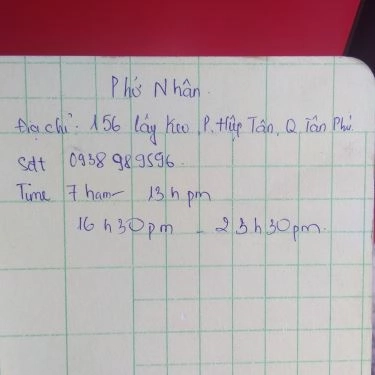 Phở Nhân.
Địa chỉ: 156 láy Keo, P. Hiệp Tân, Q Tân Phú.
Sđt 0938 989596.
Time 7 ham - 13 h pm
16 h 30 pm - 23 h 30 pm.